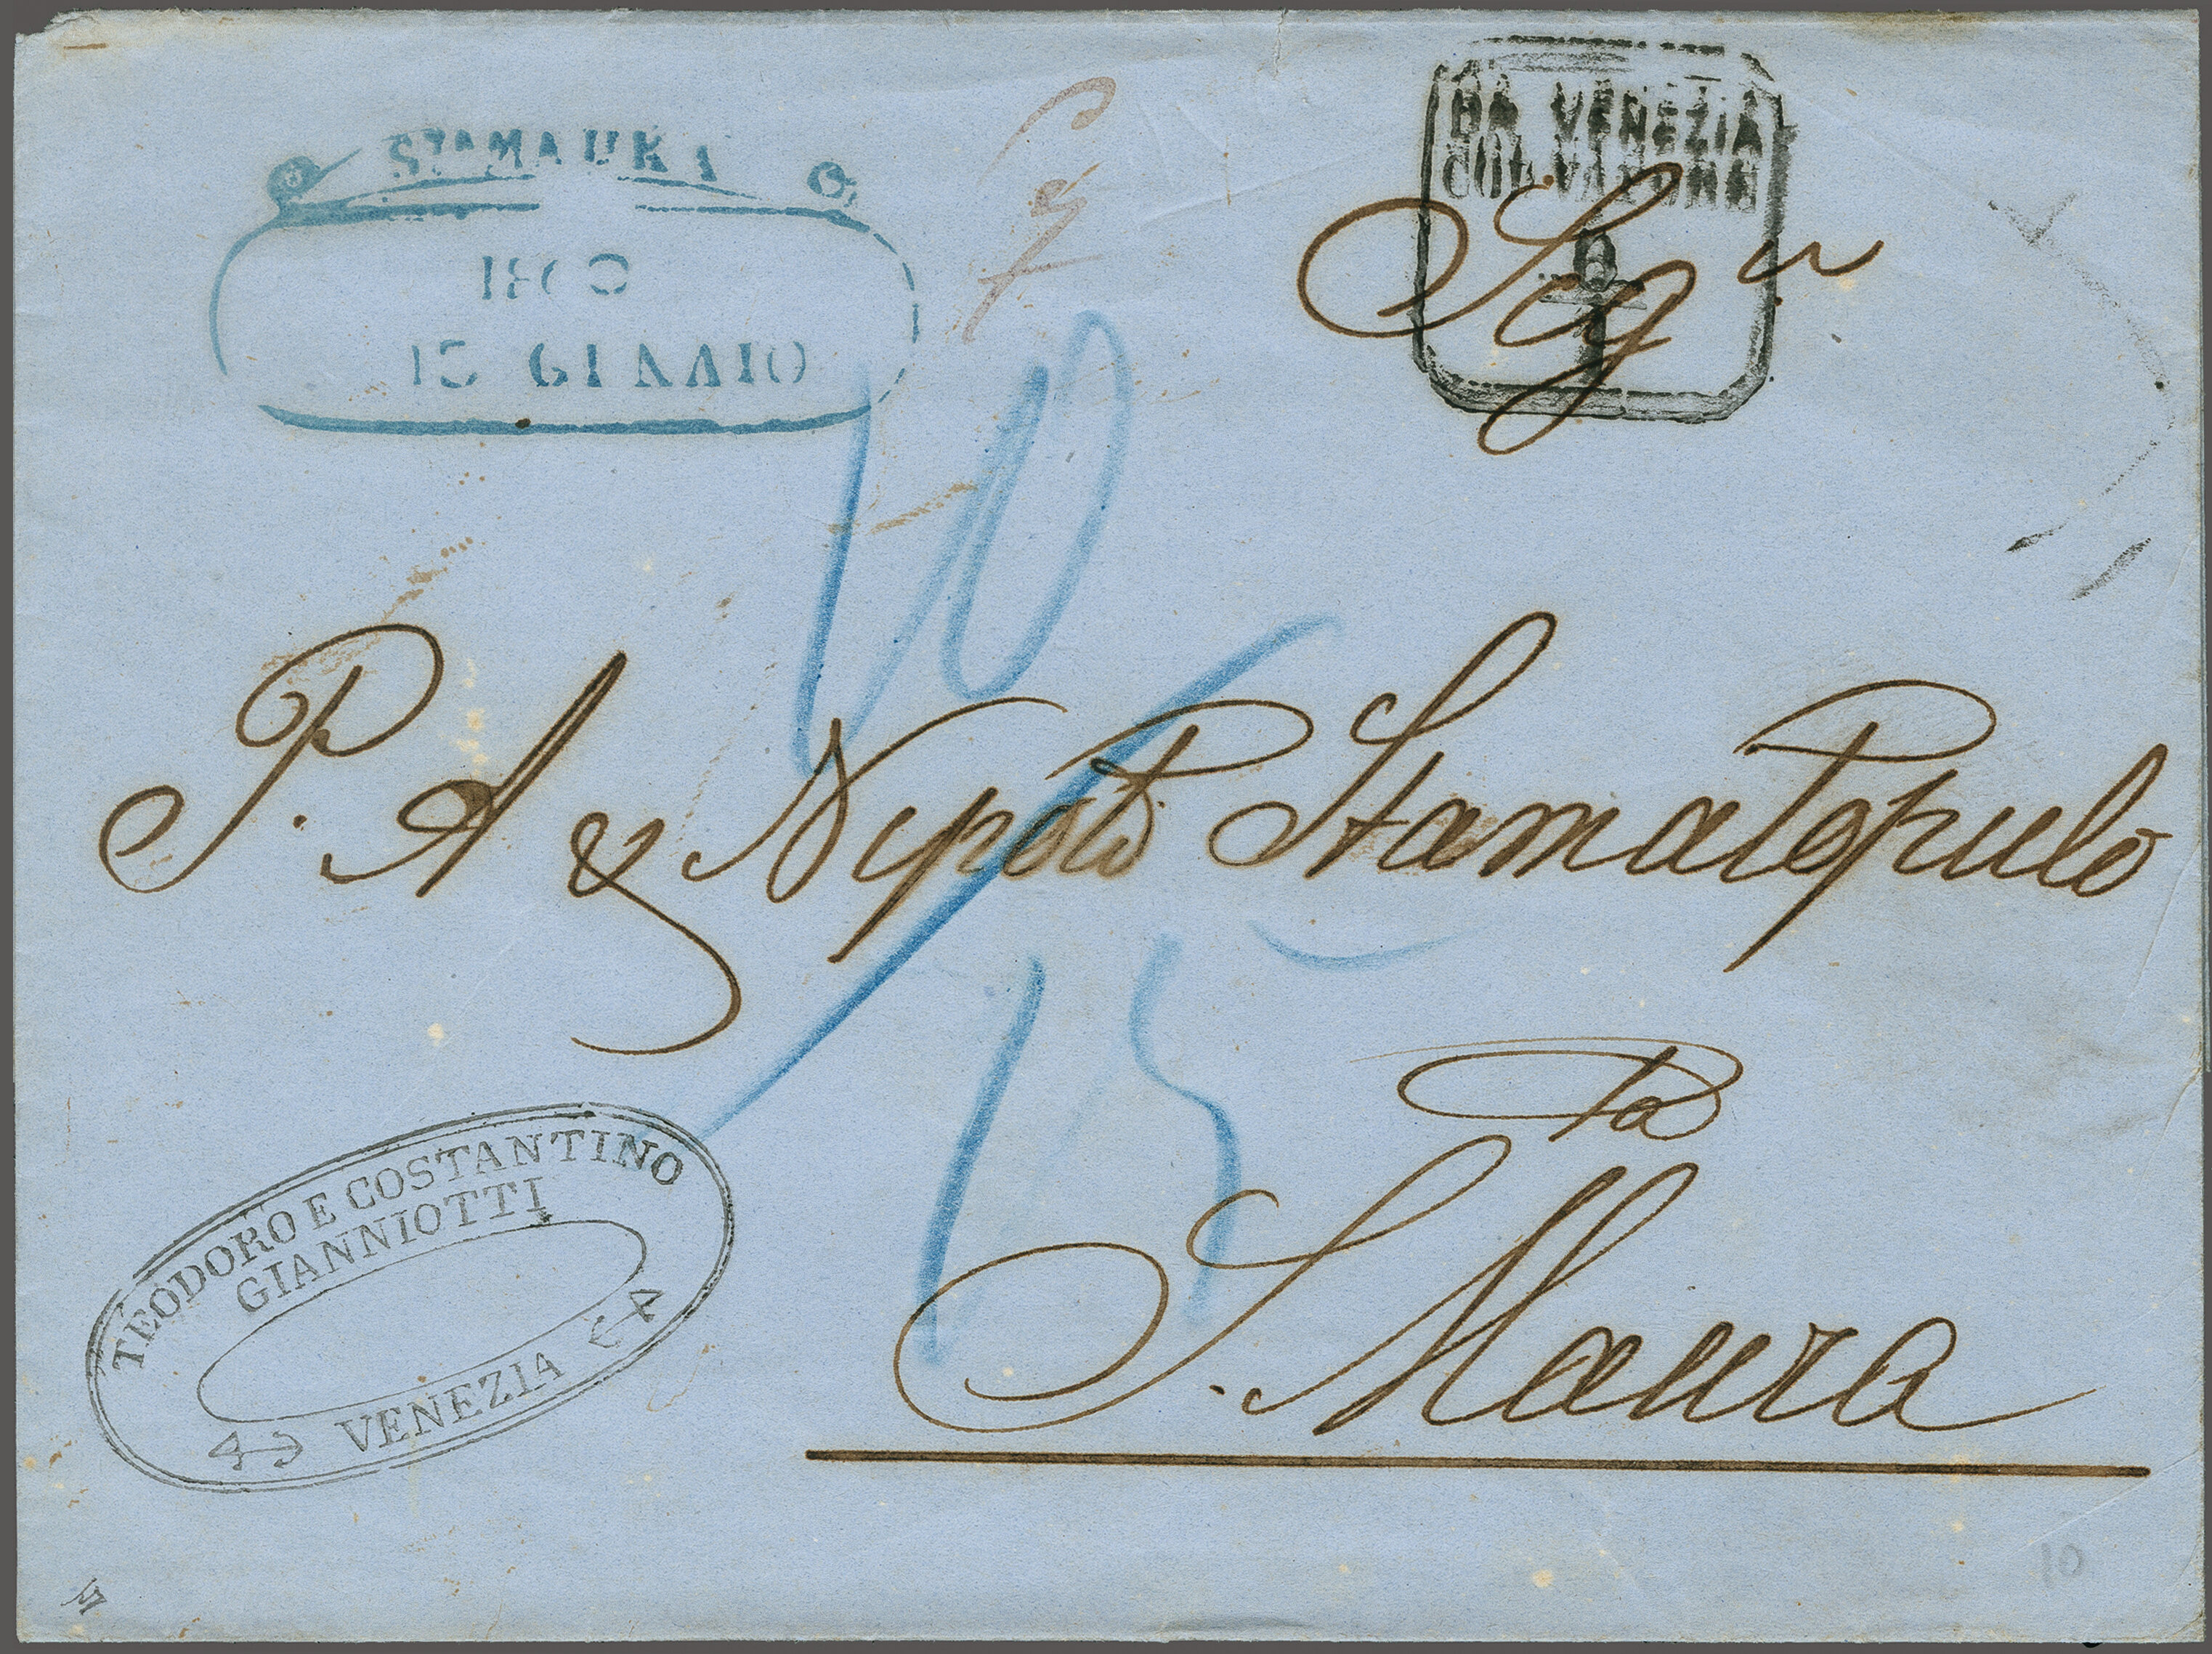 STA MAURA
GENNAIO
DA VENEZIA
COL VAPORE
Sigri
10
P. A & Nipoti Stamatopulo
15
Pa
S. Maura
TEODORO E COSTANTINO
GIANNIOTTI
VENEZIA
10